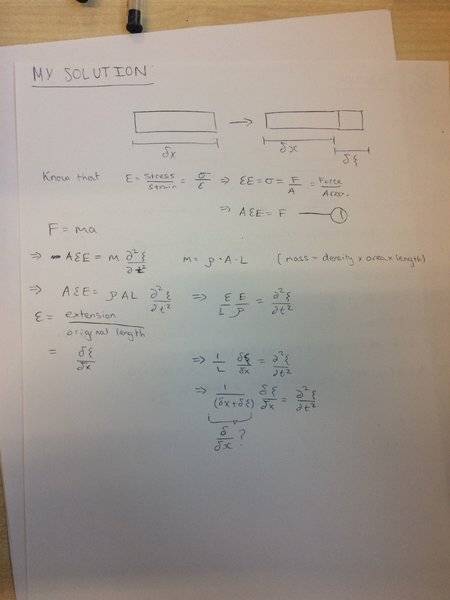 MY SOLUTION
δx → δx δξ
Know that E = stress/strain = σ/ε ⇒ εE = σ = F/A = Force/Area
⇒ AεE = F ——(1)
F = ma
⇒ AεE = m ∂²ξ/∂t² m = ρ·A·L (mass = density x area x length)
⇒ AεE = ρAL ∂²ξ/∂t² ⇒ ε/L E/ρ = ∂²ξ/∂t²
ε = extension/original length
= δξ/δx ⇒ 1/L δξ/δx = ∂²ξ/∂t²
⇒ 1/(δx+δξ) δξ/δx = ∂²ξ/∂t²
δ/δx ?